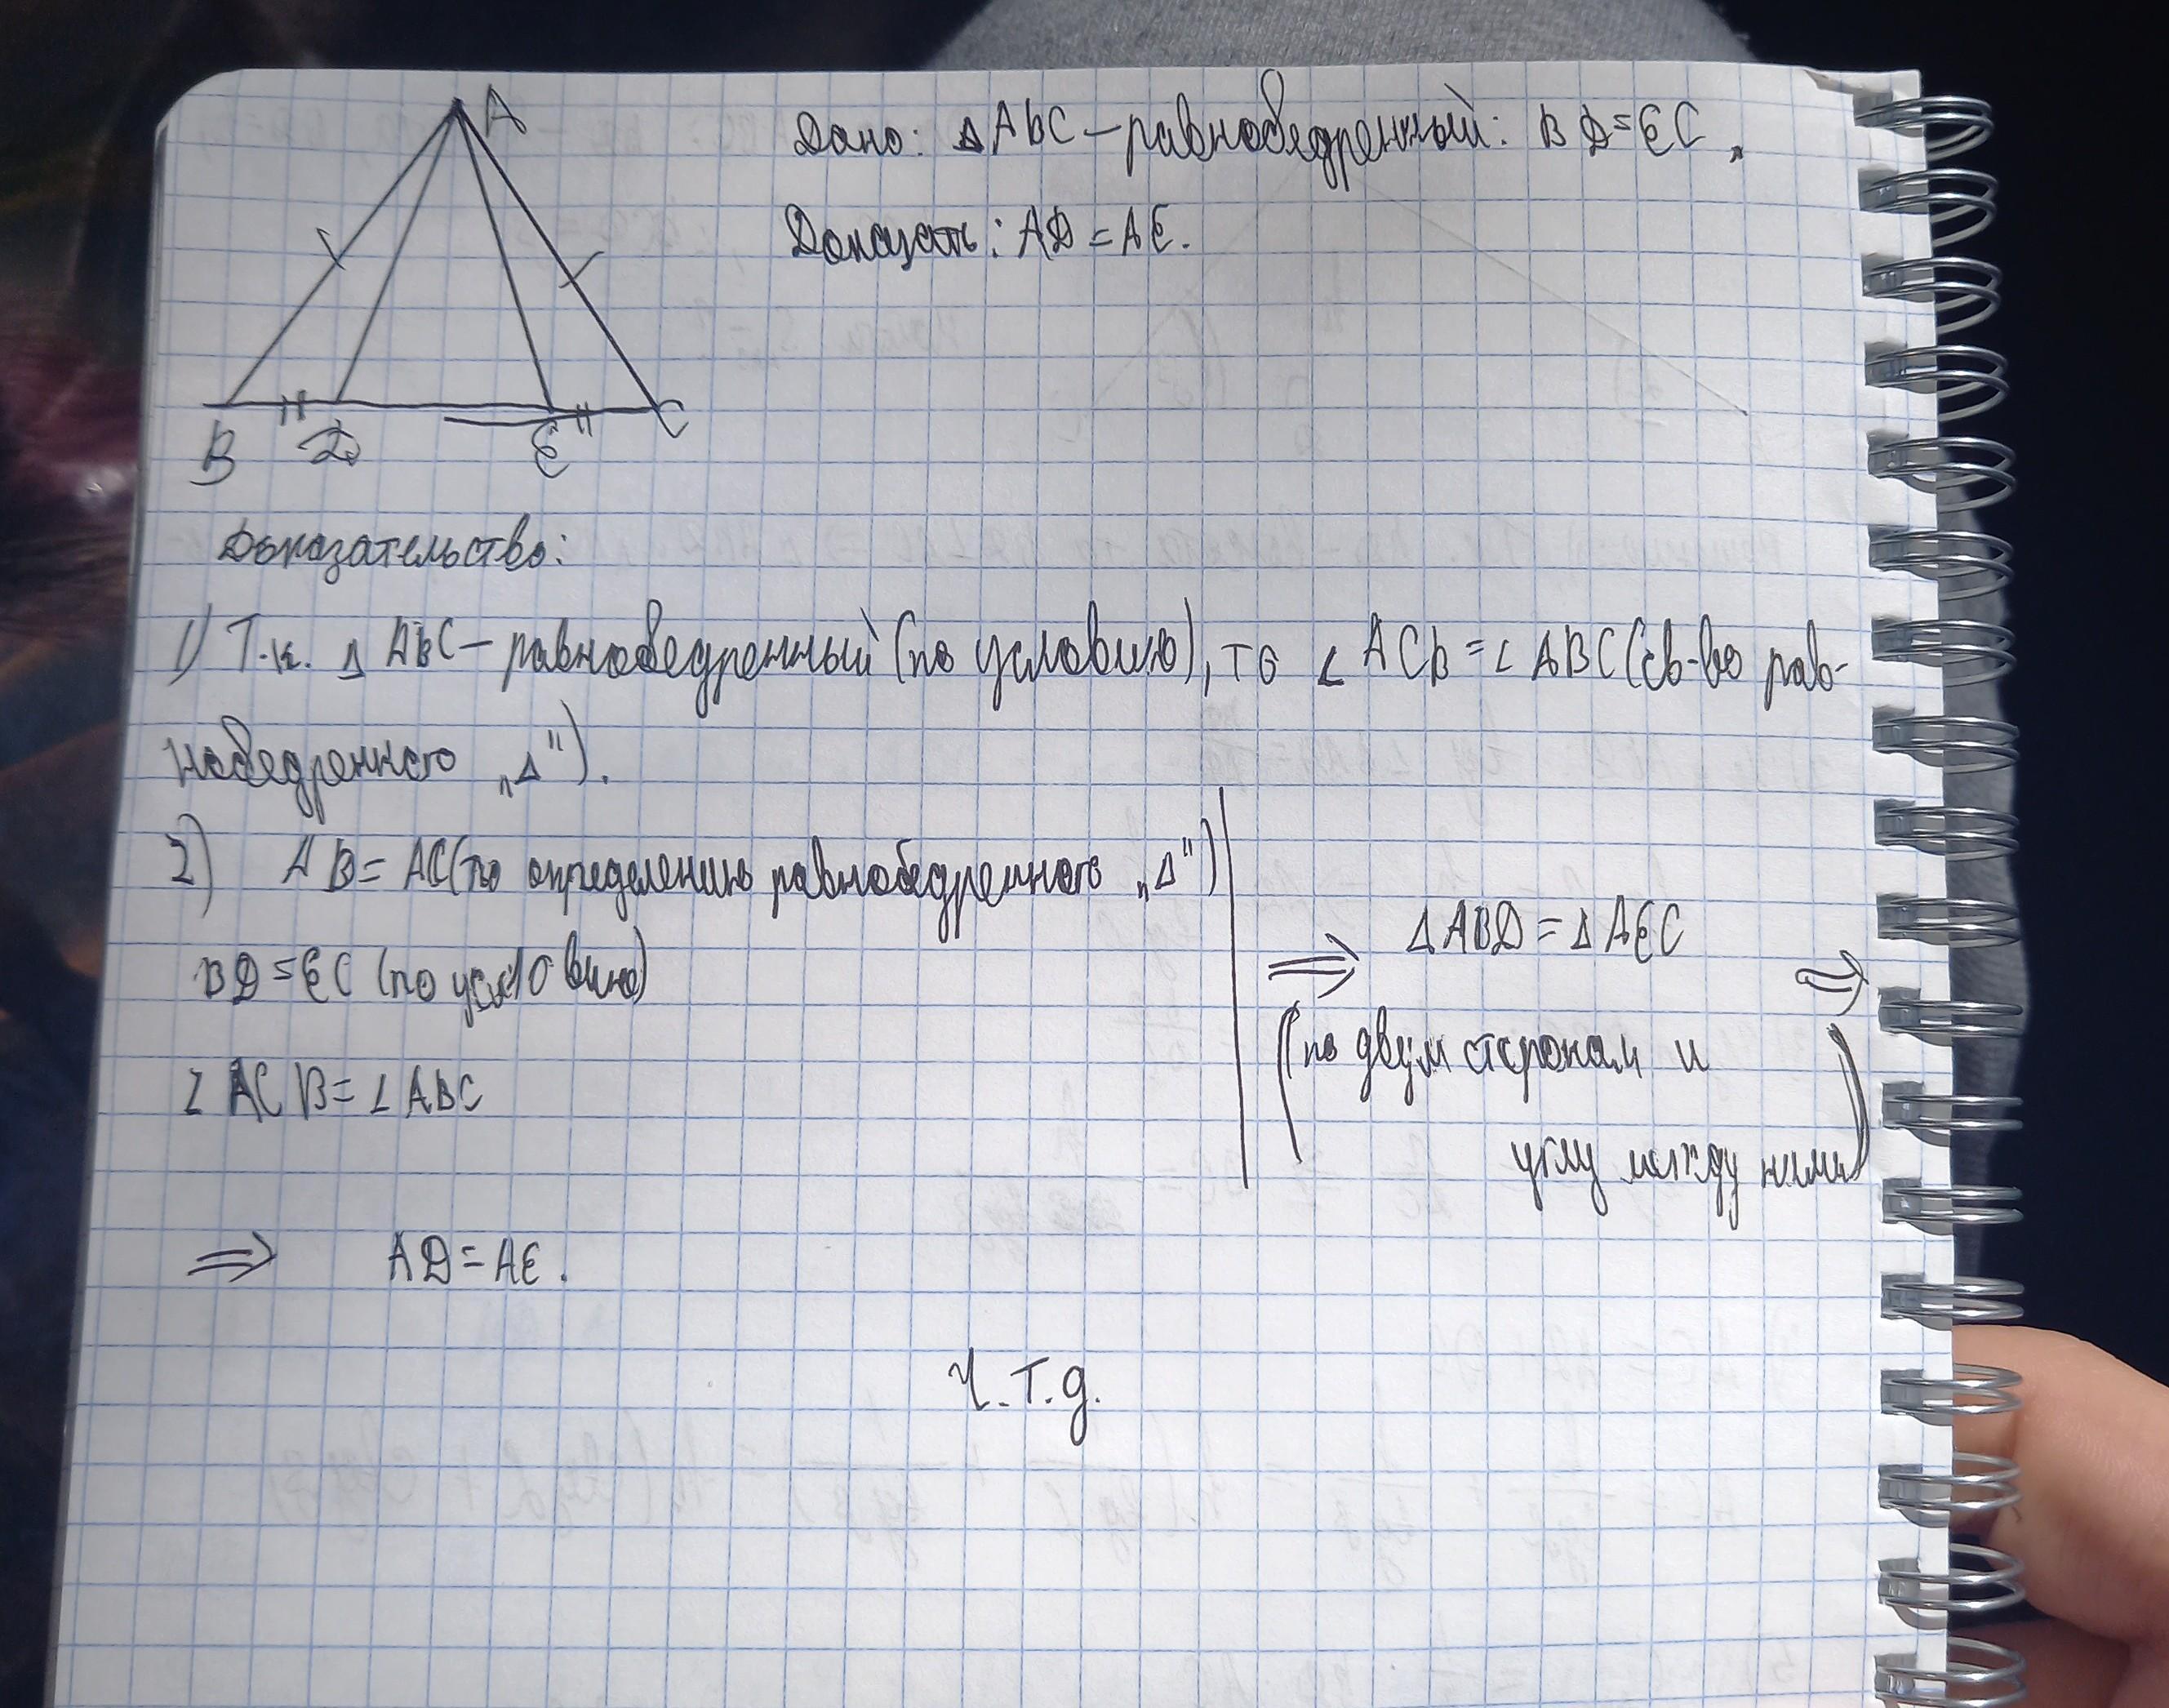 A
B D E C
Дано: △ABC – равнобедренный: BD = EC,
Доказать: AD = AE.
Доказательство:
1) Т.к. △ ABC – равнобедренный (по условию), то ∠ ACB = ∠ ABC (св-во рав-
нобедренного „△").
2) AB = AC (по определению равнобедренного „△")
BD = EC (по условию)
∠ ACB = ∠ ABC
⇒ △ABD = △AEC ⇒
(по двум сторонам и
углу между ними)
⇒ AD = AE.
Ч.т.д.